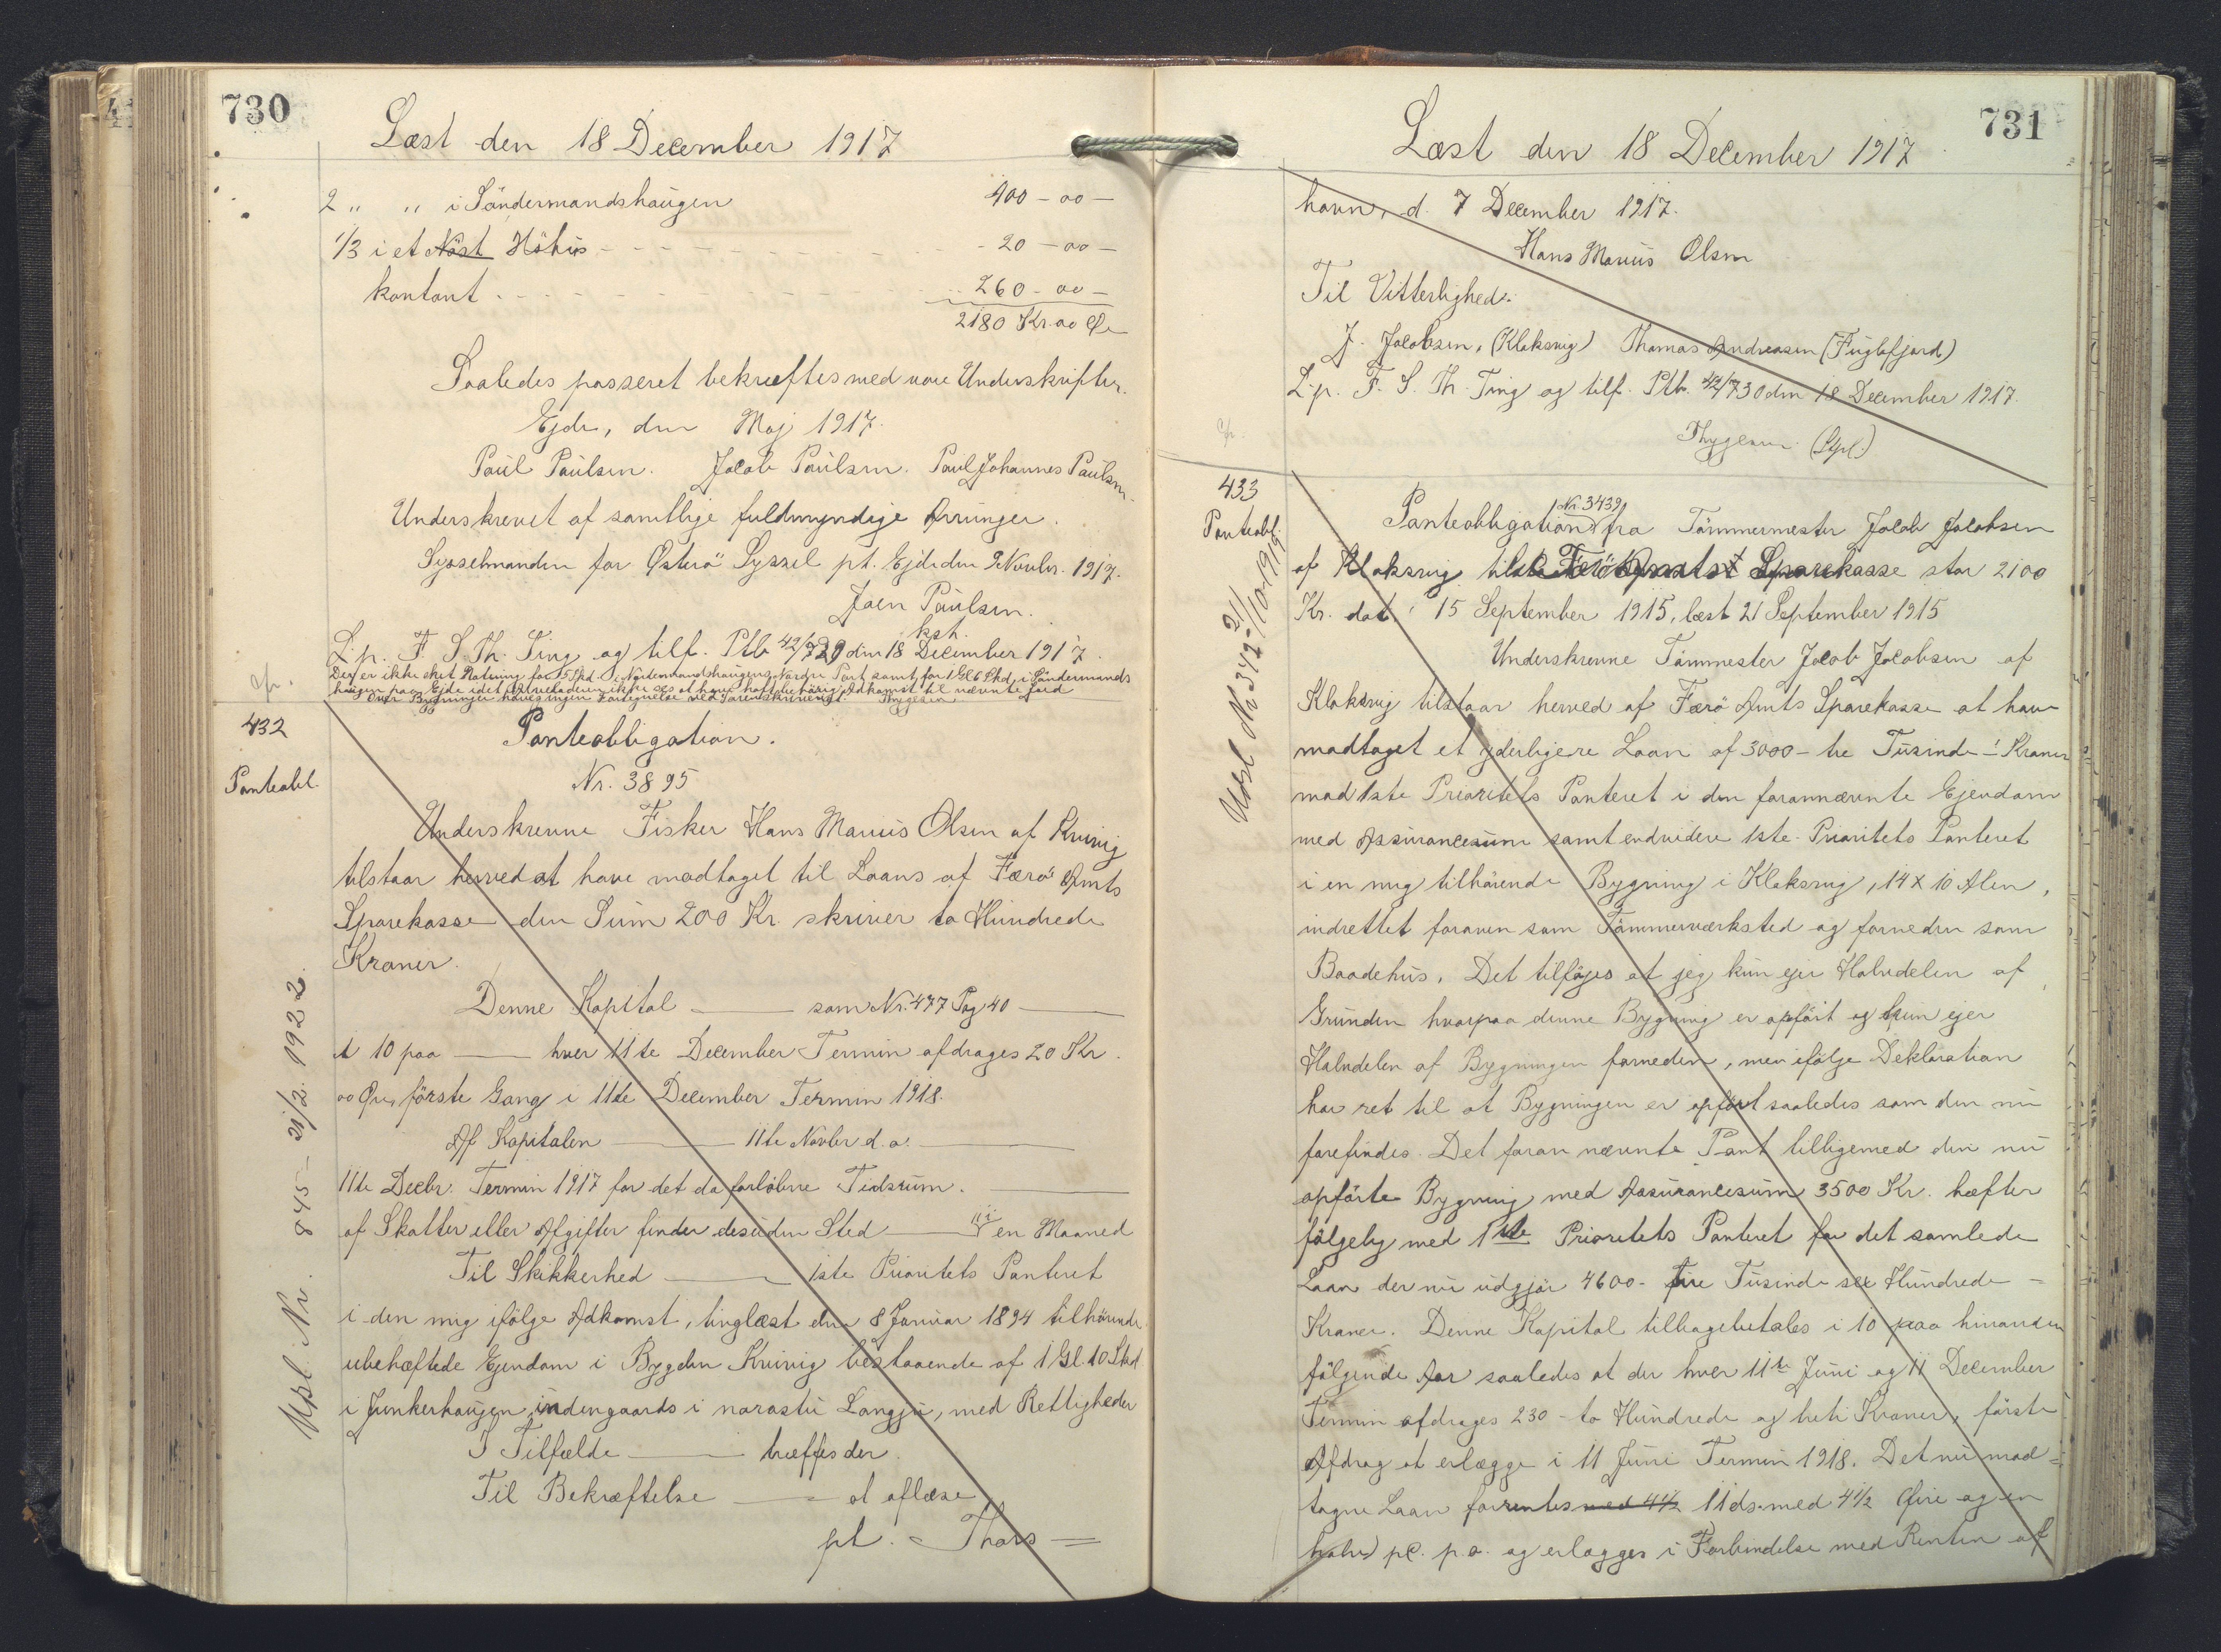 730
Læst den 18 December 1917
2 " " i Søndermandshaugen 400-00-
1/3 i et Nøst Høhus - - - 20-00-
kontant - - - 260-00-
2180 Kr. 00 Øre
Saaledes passeret bekræftes med vore Underskrifter.
Ejde, den Maj 1917.
Paul Paulsen. Jacob Paulsen. Paul Johannes Paulsen.
Underskrevet af samtlige fuldmyndige Arvinger.
Sysselmanden for Østerø Syssel pt. Ejde den 9 Novbr. 1917.
Joen Paulsen.
kst.
L. p. F. S. Th. Ting og tilf. Ptb 42/729 den 18 December 1917.
Der er ikke sket Notering for 5 Skd i Nordenmandshaugens Nørdre Part samt for 1 Gl. 6 Skd. i Søndermands
haugen paa Ejde idet
Over Bygninger haves ingen Fortegnelse ved Sorenskriveriet. Thygesen
432
Panteobl.
Panteobligation.
Nr. 3895
Underskrevne Fisker Hans Marius Olsen af Kvivig
tilstaar herved at have modtaget til Laans af Færø Amts
Sparekasse den Sum 200 Kr. skriver to Hundrede
Kroner.
Denne Kapital ——— som Nr. 477 Pag 40 ———
et 10 paa ——— hver 11te December Termin afdrages 20 Kr.
00 Øre, første Gang i 11te December Termin 1918.
Af Kapitalen ——— 11te Novbr d. a. ———
11te Decbr. Termin 1917 for det da forløbne Tidsrum. ———
af Skatter eller Afgifter finder desuden Sted ——— "i" en Maaned
Til Skikkerhed ——— 1ste Prioritets Panteret
i den mig ifølge Adkomst, tinglæst den 8 Januar 1894 tilhørende
ubehæftede Ejendom i Bygden Kvivig bestaaende af 1 Gl. 10 Skd
i Junkerhaugen, indengaards i norastu Langgju, med Rettigheder
I Tilfælde ——— træffes der.
Til Bekræftelse ——— at aflæse
pt. Thors=
Upl. Nr. 845 - 21/2. 1922.
731
Læst den 18 December 1917
havn, d. 7 December 1917.
Hans Marius Olsen
Til Vitterlighed:
J. Jacobsen, (Klaksvig) Thomas Andreasen (Fuglefjord)
L. p. F. S. Th. Ting og tilf. Ptb. 42/730 den 18 December 1917.
Thygesen (Gpl.)
433
Panteobl.
Panteobligation Nr. 3439 fra Tømmermester Jacob Jacobsen
af Klaksvig til Færø Amts Sparekasse stor 2100
Kr. dat. 15 September 1915, læst 21 September 1915
Underskrevne Tømmester Jacob Jacobsen af
Klaksvig tilstaar herved af Færø Amts Sparekasse at have
modtaget et yderligere Laan af 3000 - tre Tusinde - Kroner
mod 1ste Prioritets Panteret i den forannævnte Ejendom
med Assurancesum samt endvidere 1ste Prioritets Panteret
i en mig tilhørende Bygning i Klaksvig, 14 x 10 Alen,
indrettet foroven som Tømmerværksted og forneden som
Baadehus. Det tilføjes at jeg kun ejer Halvdelen af
Grunden hvorpaa denne Bygning er opført og kun ejer
Halvdelen af Bygningen forneden, men ifølge Deklaration
har ret til at Bygningen er opført saaledes som den nu
forefindes. Det foran nævnte Pant tilligemed den nu
opførte Bygning med Assurancesum 3500 Kr. hæfter
følgelig med 1ste Prioritets Panteret for det samlede
Laan der nu udgjør 4600 - fire Tusinde sex Hundrede -
Kroner. Denne Kapital tilbagebetales i 10 paa hinanden
følgende Aar saaledes at der hver 11te Juni og 11 December
Termin afdrages 230 - to Hundrede og treti Kroner, første
Afdrag at erlægge i 11 Juni Termin 1918. Det nu mod=
tagne Laan forrentes med 4½ 11 ds. med 4½ fire og en
halv pC. p. a. og erlægges i Forbindelse med Renten af